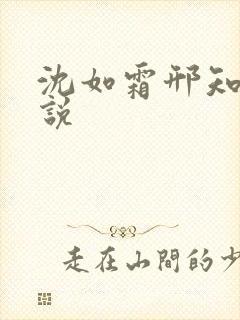 沈如霜邢知
說
走在山間的少